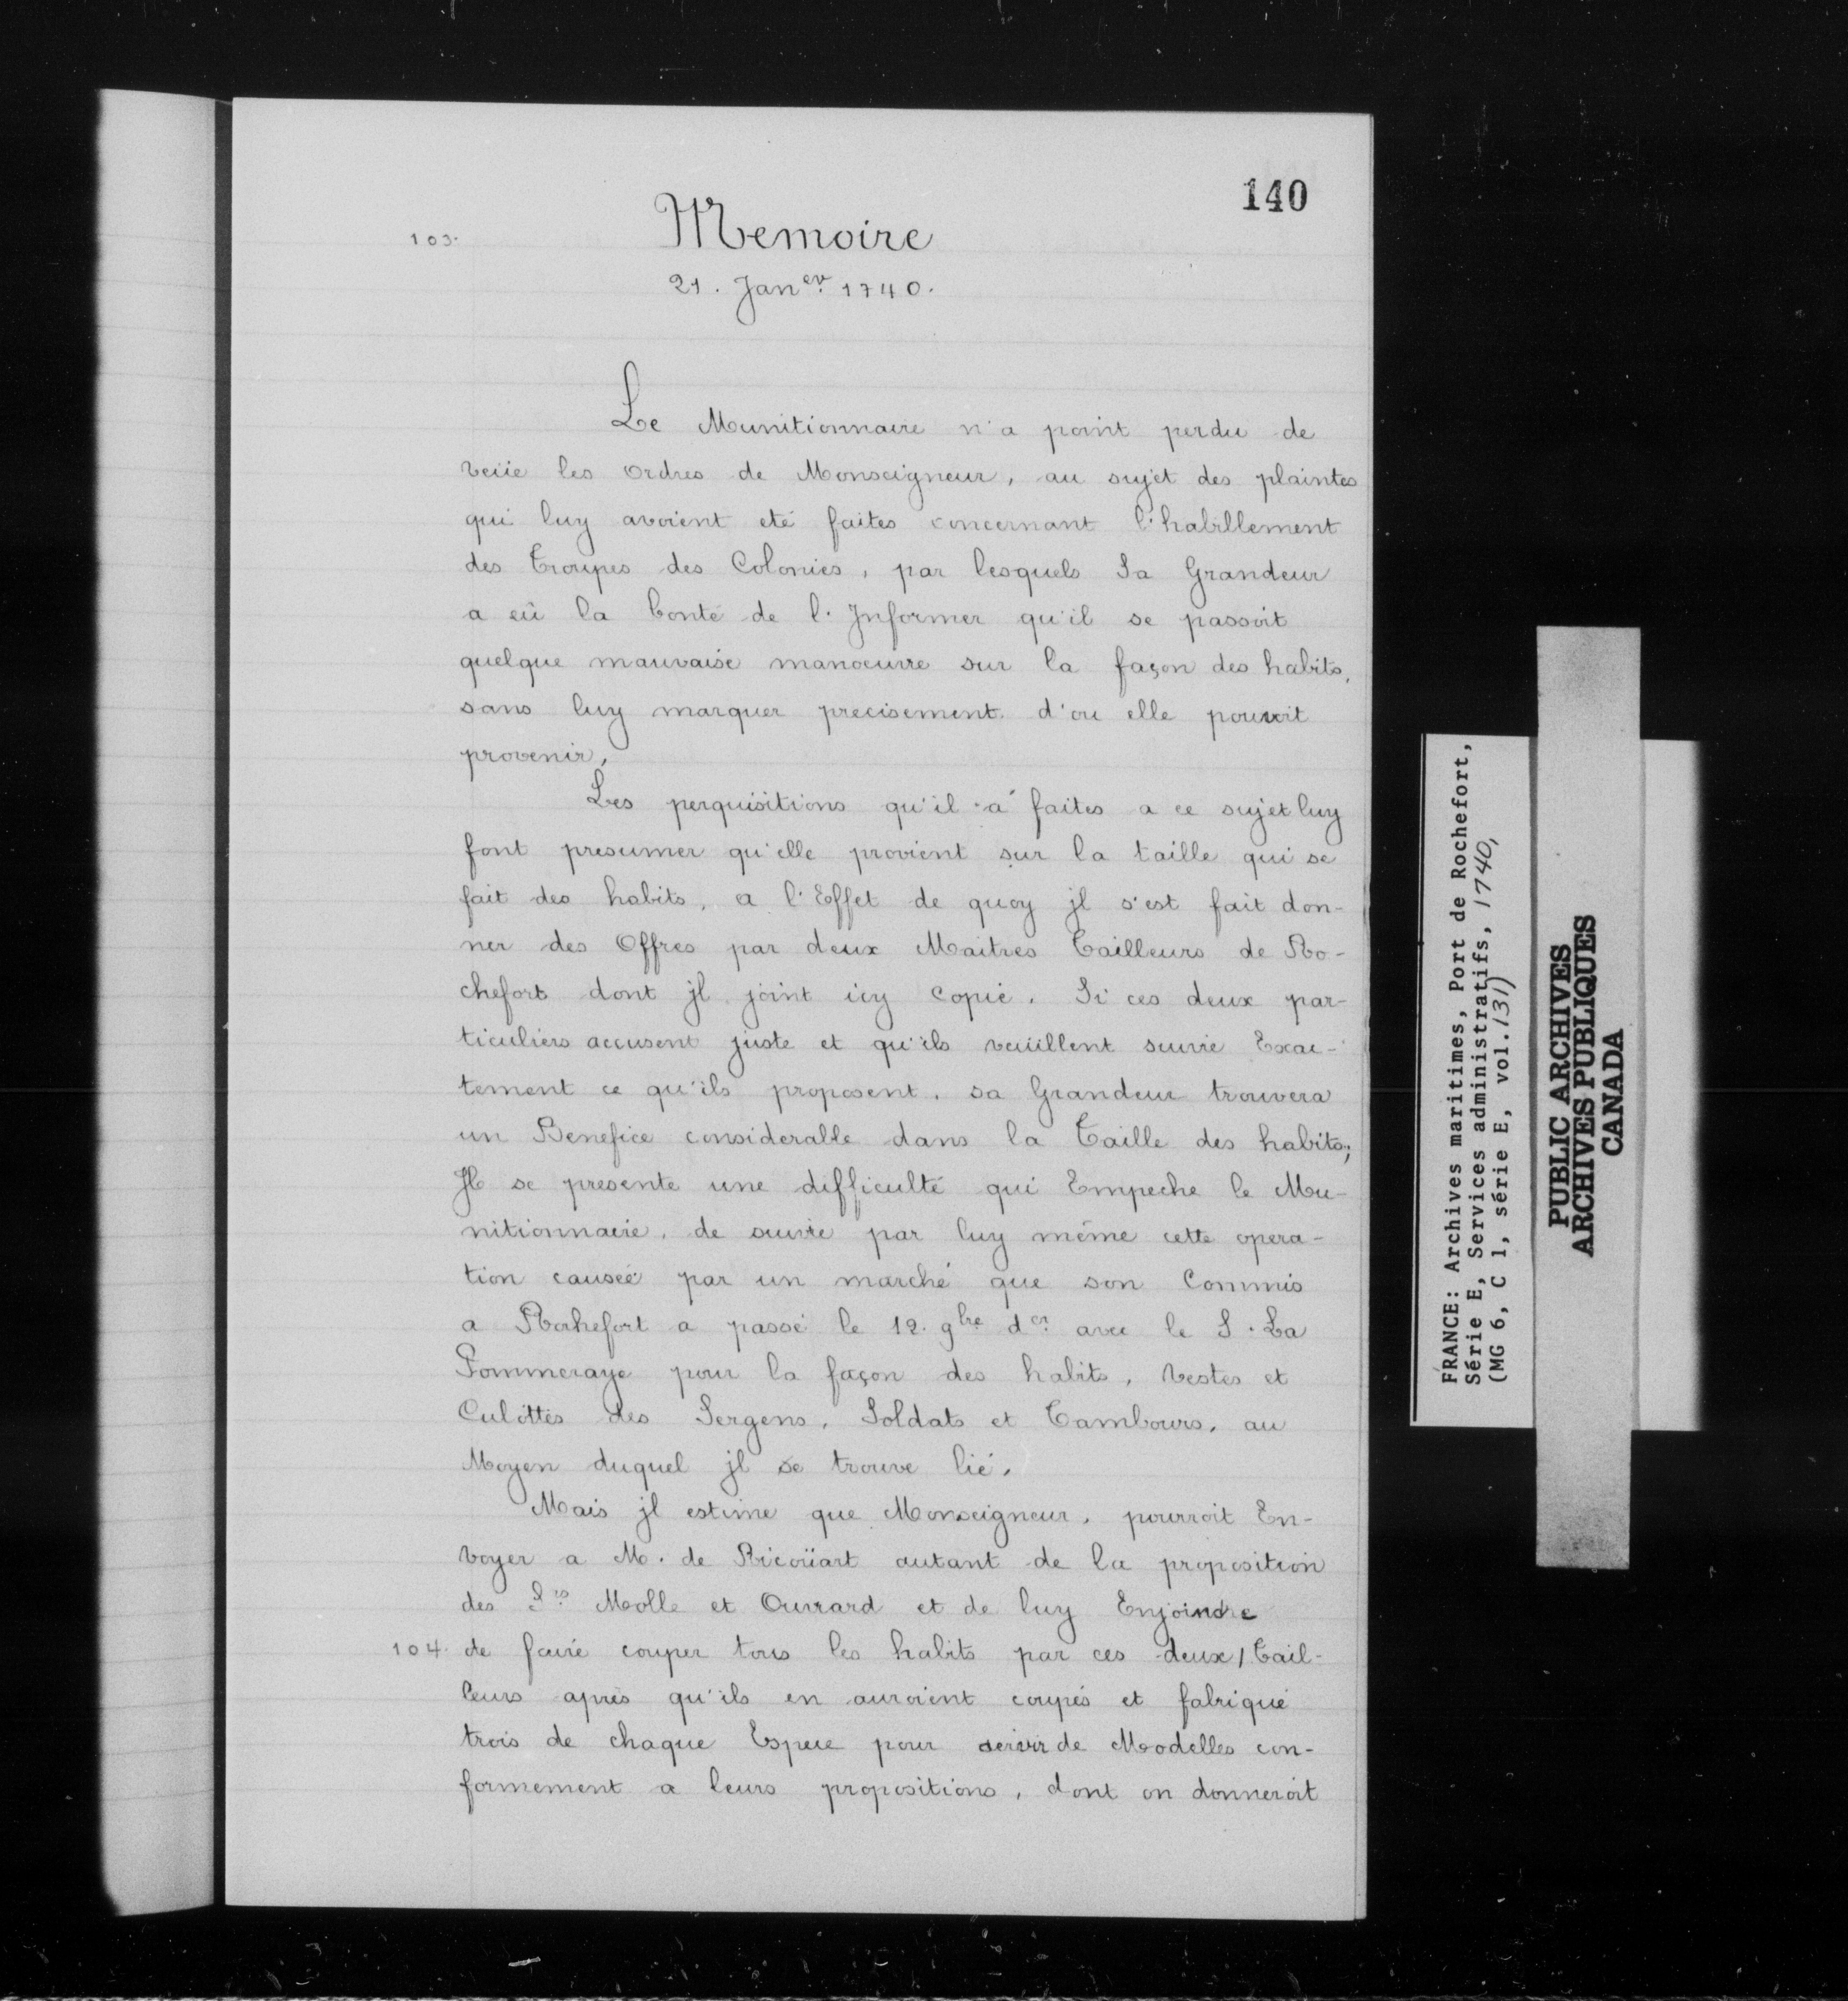 140
103.
Memoire
21. Jan.er 1740.
Le Munitionnaire n'a point perdu de
veüe les ordres de Monseigneur, au sujet des plaintes
qui luy avoient eté faites concernant l'habillement
des Troupes des Colonies, par lesquels Sa Grandeur
a eü la bonté de l'Informer qu'il se passoit
quelque mauvaise manoeuvre sur la façon des habits,
sans luy marquer precisement d'ou elle pouvoit
provenir,
Les perquisitions qu'il a faites a ce sujet luy
font presumer qu'elle provient sur la taille qui se
fait des habits, a l'Effet de quoy jl s'est fait don-
ner des Offres par deux Maitres Tailleurs de Ro-
chefort dont jl joint icy copie. Si ces deux par-
ticuliers accusent juste et qu'ils veüillent suivre Exac-
tement ce qu'ils proposent, sa Grandeur trouvera
un Benefice considerable dans la Taille des habits;
Jl se presente une difficulté qui Empeche le Mu-
nitionnaire, de suivre par luy même cette opera-
tion causée par un marché que son Commis
a Rochefort a passé le 12. 9bre d.er avec le S. La
Pommeraye pour la façon des habits, Vestes et
Culottes des Sergens, Soldats et Tambours, au
Moyen duquel jl se trouve lié.
Mais jl estime que Monseigneur, pourroit En-
voyer a M. de Ricoüart autant de la proposition
des S.rs Molle et Ouvrard et de luy Enjoindre
104. de faire couper tous les habits par ces deux / Tail-
leurs aprés qu'ils en auroient coupés et fabriqué
trois de chaque Espece pour servir de Modelles con-
formement a leurs propositions, dont on donneroit
FRANCE: Archives maritimes, Port de Rochefort,
Série E, Services administratifs, 1740,
(MG 6, C 1, série E, vol.131)
PUBLIC ARCHIVES
ARCHIVES PUBLIQUES
CANADA